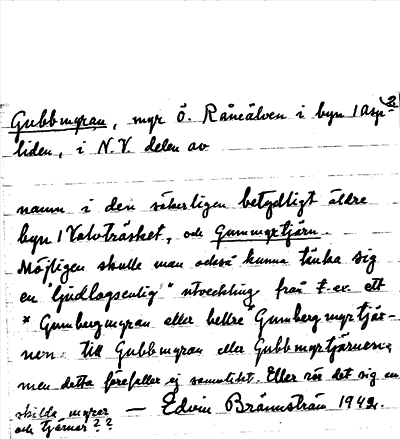 2
Gubbmyran, myr ö. Råneälven i byn 1 Asp-
liden, i N.V. delen av
namn i den säkerligen betydligt äldre
byn 1 Valvträsket, och Gummyrtjärn.
Möjligen skulle man också kunna tänka sig
en "ljudlagsenlig" utveckling från t.ex. ett
* Gumbergmyran eller hellre * Gumbergmyrtjär-
nen till Gubbmyran eller Gubbmyrtjärnen,
men detta förefaller ej sannolikt. Eller rör det sig om
skilda myrar
och tjärnar?? — Edvin Brännström 1942.